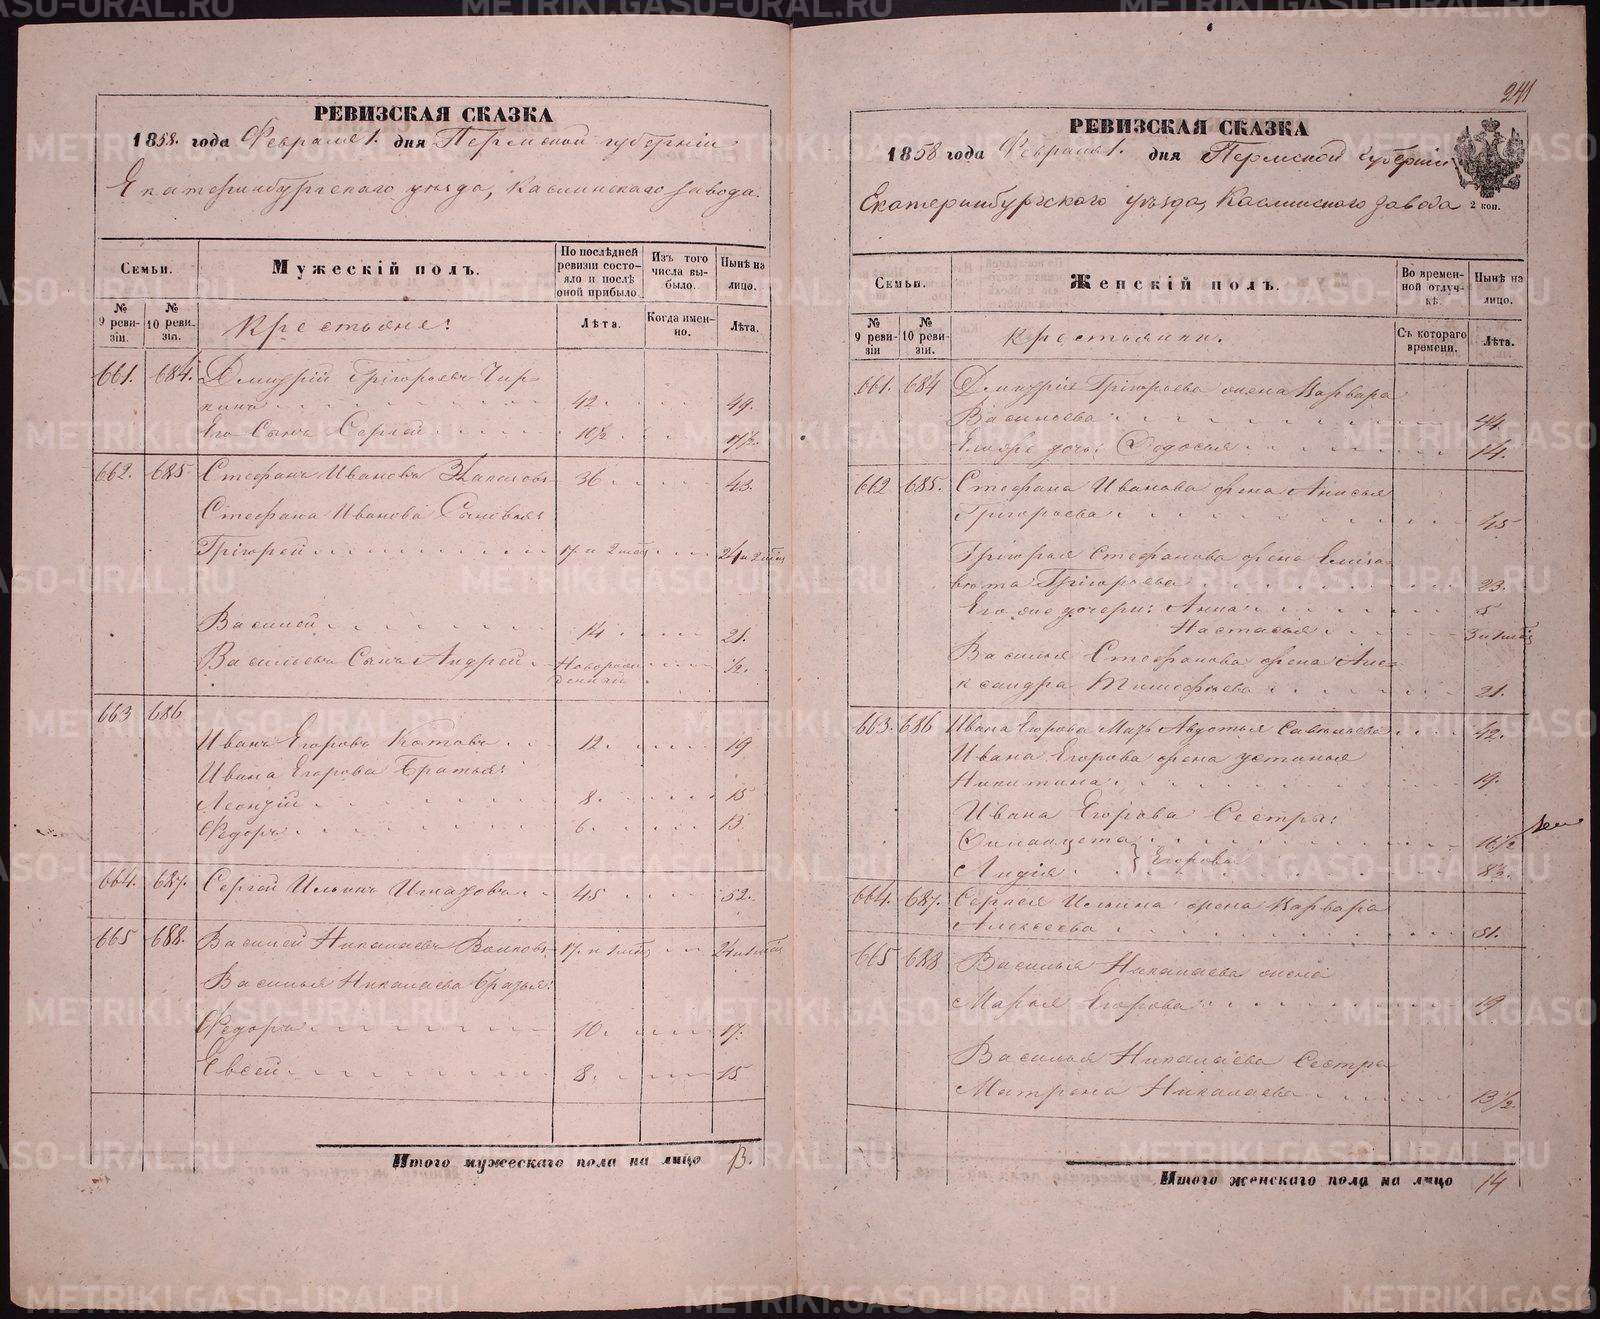 РЕВИЗСКАЯ СКАЗКА
1858. года Февраля 1. дня Пермской губерніи
Екатеринбургскаго уѣзда, Каслинскаго завода.
Семьи.
Мужескій полъ.
По послѣдней ревизіи состояло и послѣ оной прибыло.
Изъ того числа выбыло.
Нынѣ на лицо.
№ 9 ревизіи.
№ 10 ревизіи.
Крестьяне:
Лѣта.
Когда именно.
Лѣта.
661. 684. Дмитрій Григорьевъ Чир-
кинъ 42 49.
Его Сынъ Сергей 10½ 17½.
662. 685 Стефанъ Ивановъ 36 43.
Стефана Иванова Сыновья:
Григорей 17 и 2 мѣс 24 и 2 мѣс
Василей 14 21.
Васильевъ Сынъ Андрей Новорож-
денный ½.
663 686
Иванъ Егоровъ Котовъ 12. 19
Ивана Егорова Братья:
Леонтій 8. 15
Федоръ 6. 13
664. 687. Сергей Ильинъ 45 52.
665 688. Василей Николаевъ Волковъ 17. и 1 мѣс 24 и 1 мѣс
Василья Николаева Братья:
Федоръ 10. 17.
Евсей 8. 15
Итого мужескаго пола на лицо 13.
241
РЕВИЗСКАЯ СКАЗКА
1858 года Февраля 1. дня Пермской губерніи
Екатеринбургскаго уѣзда, Каслинскаго завода
2 коп.
Семьи.
Женскій полъ.
Во временной отлучкѣ.
Нынѣ на лицо.
№ 9 ревизіи
№ 10 ревизіи.
Крестьянки.
Съ котораго времени.
Лѣта.
661. 684 Дмитрія Григорьева жена Варвара
Васильева 44.
дочь: Федосья 14.
662 685. Стефана Иванова жена Анисья
Григорьева 45
Григорья Стефанова жена Елиза-
вета Григорьева 23.
Его же дочери: Анна 5
Настасья 3 и 1 мѣс
Василья Стефанова жена Алек-
сандра Тимофеева 21.
663. 686 Ивана Егорова Мать Авдотья Савельева 42.
Ивана Егорова жена Устинья
Никитина 19.
Ивана Егорова Сестры:
16½
Лидія Егоровы 8½.
664. 687. Сергея Ильина жена Варвара
Алексеева 51.
665 688 Василья Николаева жена
Марья Егорова 19
Василья Николаева Сестра
Матрена Николаева 13½.
Итого женскаго пола на лицо 14
METRIKI.GASO-URAL.RU